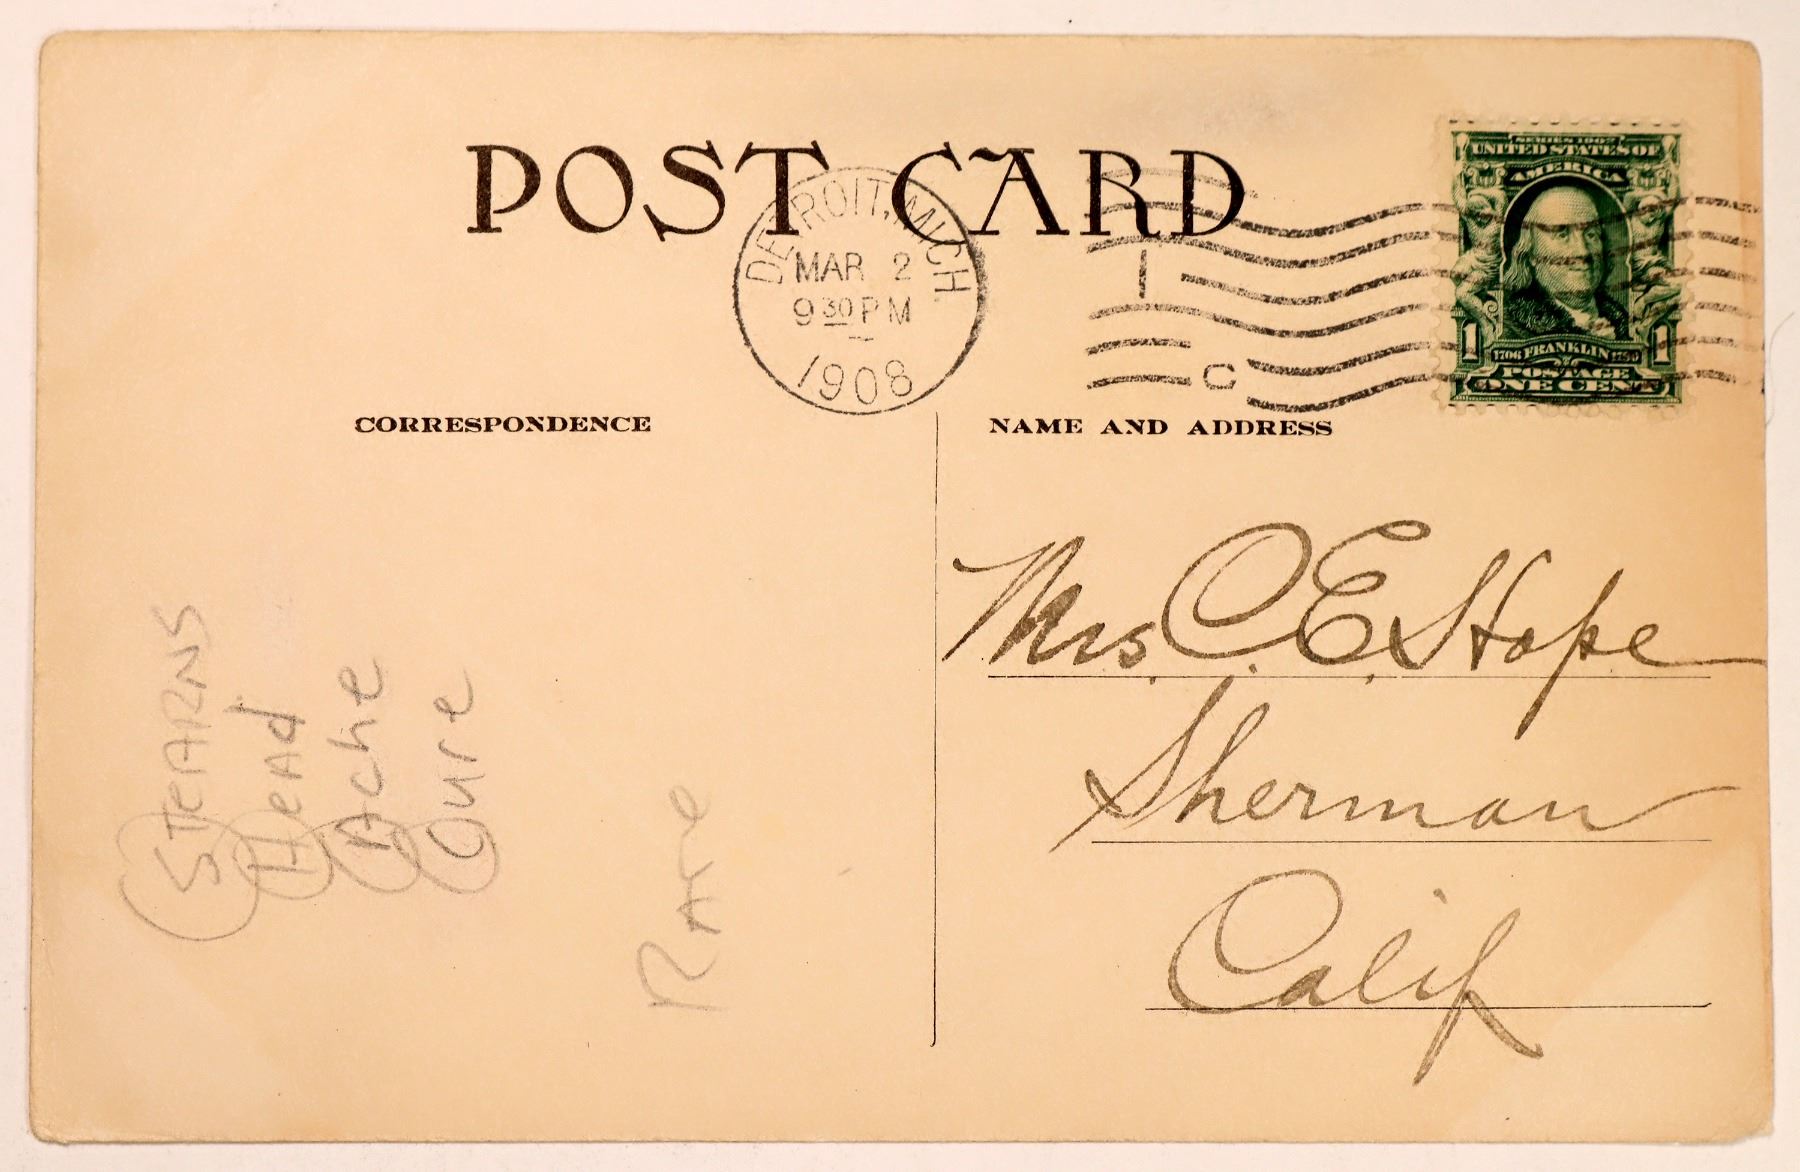 POST CARD
DETROIT, MICH.
MAR 2
9 30 PM
1908
1
C
SERIES 1902
UNITED STATES OF
AMERICA
1 1706 FRANKLIN 1790 1
POSTAGE
ONE CENT
CORRESPONDENCE
NAME AND ADDRESS
Mrs. C. E. Hope
Sherman
Calif
STEARNS
Head
Ache
Cure
Rare